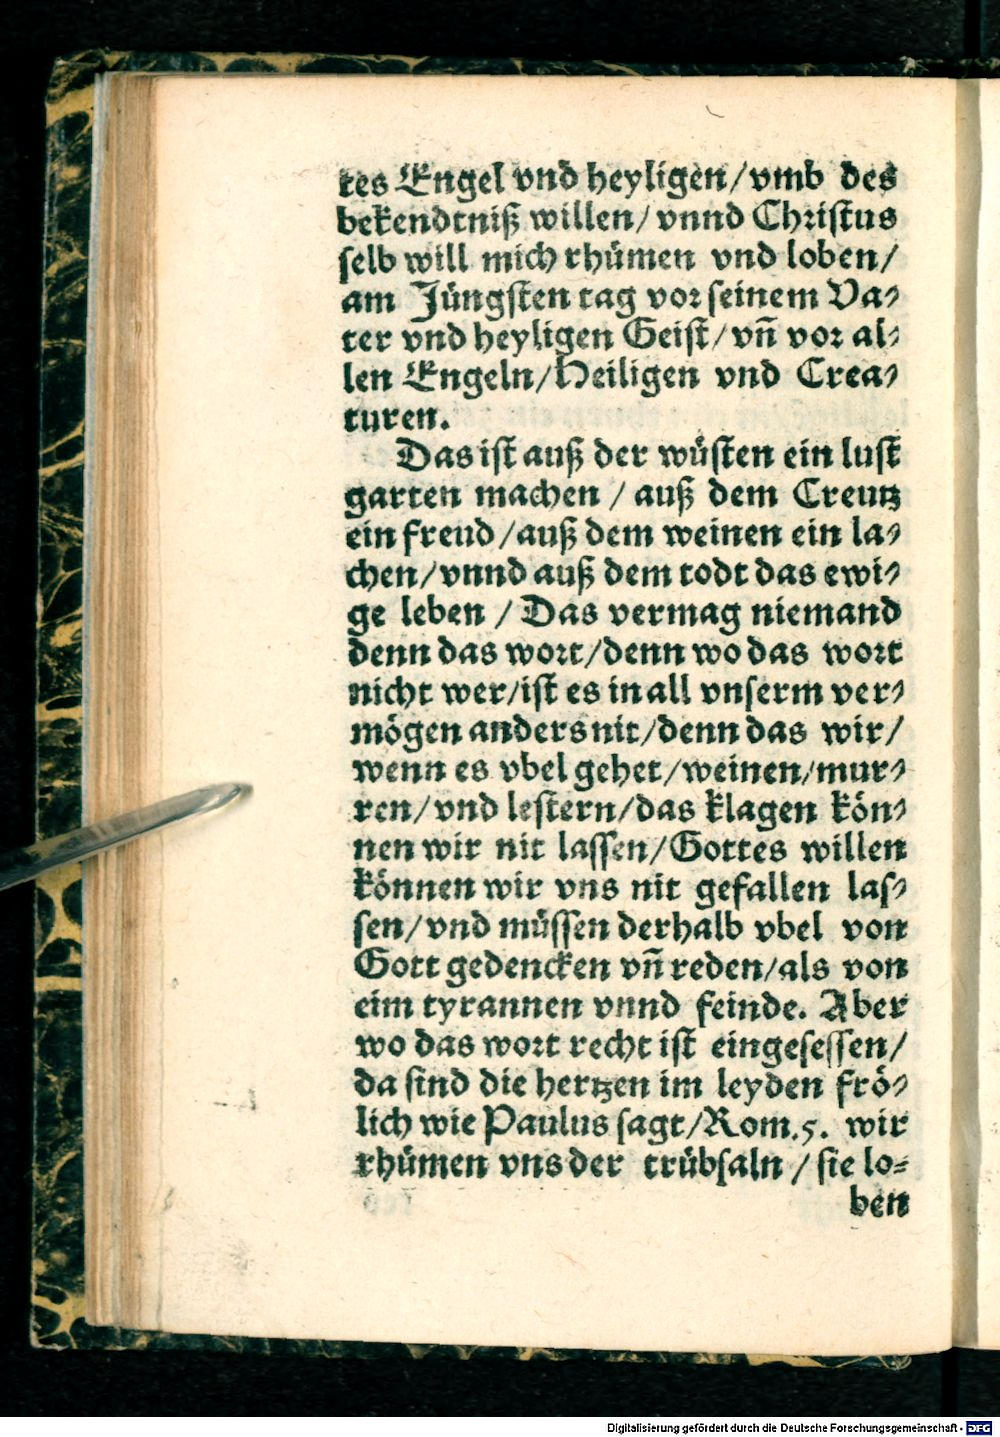 tes Engel vnd heyligen/vmb des
bekendtniß willen/ vnnd Christus
selb will mich rhümen vnd loben/
am Jüngsten tag vor seinem Va⸗
ter vnd heyligen Geist/vñ vor al⸗
len Engeln/Heiligen vnd Crea⸗
turen.
Das ist auß der wüsten ein lust
garten machen / auß dem Creutz
ein freud/auß dem weinen ein la⸗
chen/vnnd auß dem todt das ewi⸗
ge leben / Das vermag niemand
denn das wort/denn wo das wort
nicht wer/ist es in all vnserm ver⸗
mögen anders nit/denn das wir/
wenn es vbel gehet/weinen/mur⸗
ren/vnd lestern/das klagen kön⸗
nen wir nit lassen/Gottes willen
können wir vns nit gefallen las⸗
sen/vnd müssen derhalb vbel von
Gott gedencken vñ reden/als von
eim tyrannen vnnd feinde. Aber
wo das wort recht ist eingesessen/
da sind die hertzen im leyden frö⸗
lich wie Paulus sagt/Rom.5. wir
rhümen vns der trübsaln / sie lo⸗
ben
Digitalisierung gefördert durch die Deutsche Forschungsgemeinschaft - DFG